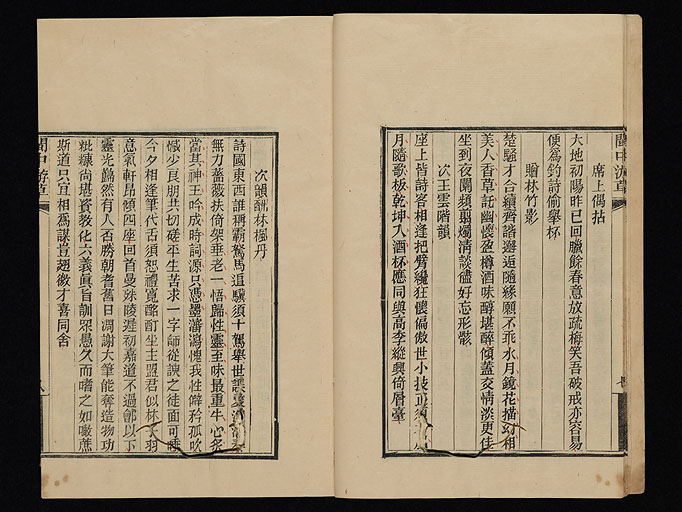 席上偶拈
大地初陽昨已回臘餘春意放疏梅笑吾破戒亦容易
便爲釣詩偷舉杯
贈林竹影
楚騷才合續齊諧邂逅隨緣願不乖水月鏡花描幻相
美人香草託幽懷盈樽酒味醇堪醉傾蓋交情淡更佳
坐到夜闌頻剪燭清談儘好忘形骸
次王雲階韻
座上皆詩客相逢把臂纔狂懷偏傲世小技
月隨歌板乾坤入酒杯應同與高李縱興倚層臺
次韻酬林楓丹
詩國東西誰稱霸駑馬追驥須十駕舉世讓
無力薔薇扶倚架垂老一悟歸性靈至味最重牛心炙
當其神王吟成時詞源只憑墨瀋瀉愧我性僻矜孤吹
慨少良朋共切磋平生苦求一字師從諛之徒面可唾
今夕相逢筆代舌須恕禮寬酩酊坐主盟君似林 羽
意氣軒昂傾四座回首曼殊陵遲初嘉道不過鄶以下
靈光巋然有人否勝朝耆舊日凋謝大筆能奪造物功
粃糠尚堪資教化六義眞旨訓罙愚久而嗜之如噉蔗
斯道只宜相爲謀豈趐微才喜同舍
閩中游草